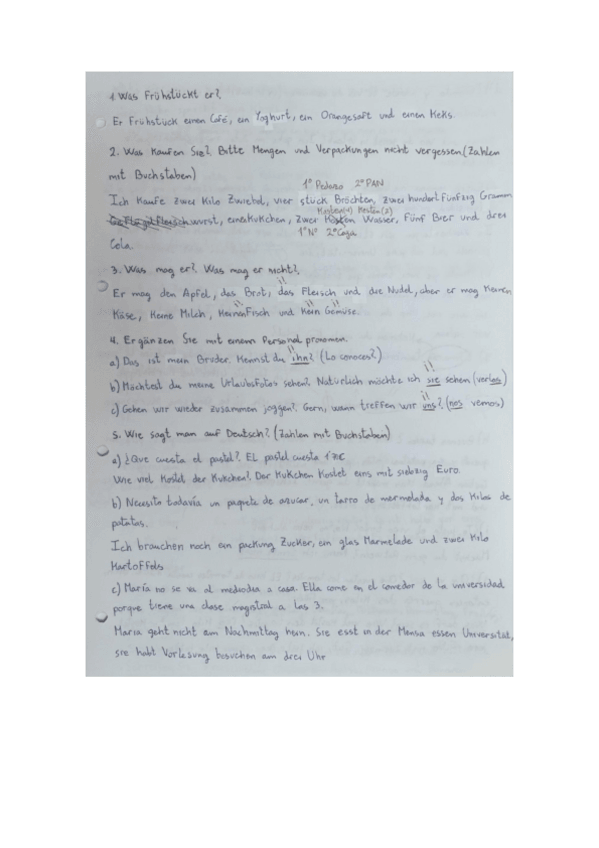 1. Was Frühstückt er?
Er Frühstück einen Café, ein Yoghurt, ein Orangesaft und einen Keks.
2. Was Kaufen Sie? Bitte Mengen und Verpackungen nicht vergessen (Zahlen
mit Buchstaben)
1º Pedazo 2º PAN
Ich Kaufe zwei Kilo Zwiebel, vier stück Brötchen, zwei hundert fünfzig Gramm
wurst, einen Kukchen, zwei Kasten Wasser, Fünf Bier und drei
1º Nº 2º Caja
Cola.
3. Was mag er? Was mag er nicht?
Er mag den Apfel, das Brot, das Fleisch und die Nudel, aber er mag Keinen
Käse, Keine Milch, Keinen Fisch und Kein Gemüse.
4. Ergänzen Sie mit einem Personal pronomen.
a) Das ist mein Bruder. Kennst du ihn? (Lo conoces?)
b) Möchtest du meine Urlaubsfotos sehen? Natürlich möchte ich sie sehen (verlas)
c) Gehen wir wieder zusammen joggen? Gern, wann treffen wir uns? (nos vemos)
5. Wie sagt man auf Deutsch? (Zahlen mit Buchstaben)
a) ¿Que cuesta el pastel? EL pastel cuesta 1'70€
Wie viel Kostet der Kukchen? Der Kukchen Kostet eins mit siebzig Euro.
b) Necesito todavía un paquete de azucar, un tarro de mermelada y dos Kilos de
patatas.
Ich brauchen noch ein packung Zucker, ein glas Marmelade und zwei Kilo
Kartoffels
c) María no se va al mediodia a casa. Ella come en el comedor de la universidad,
porque tiene una clase magistral a las 3.
Maria geht nicht am Nachmittag hein. Sie esst in der Mensa essen Universität,
sie habt Vorlesung besuchen am drei Uhr